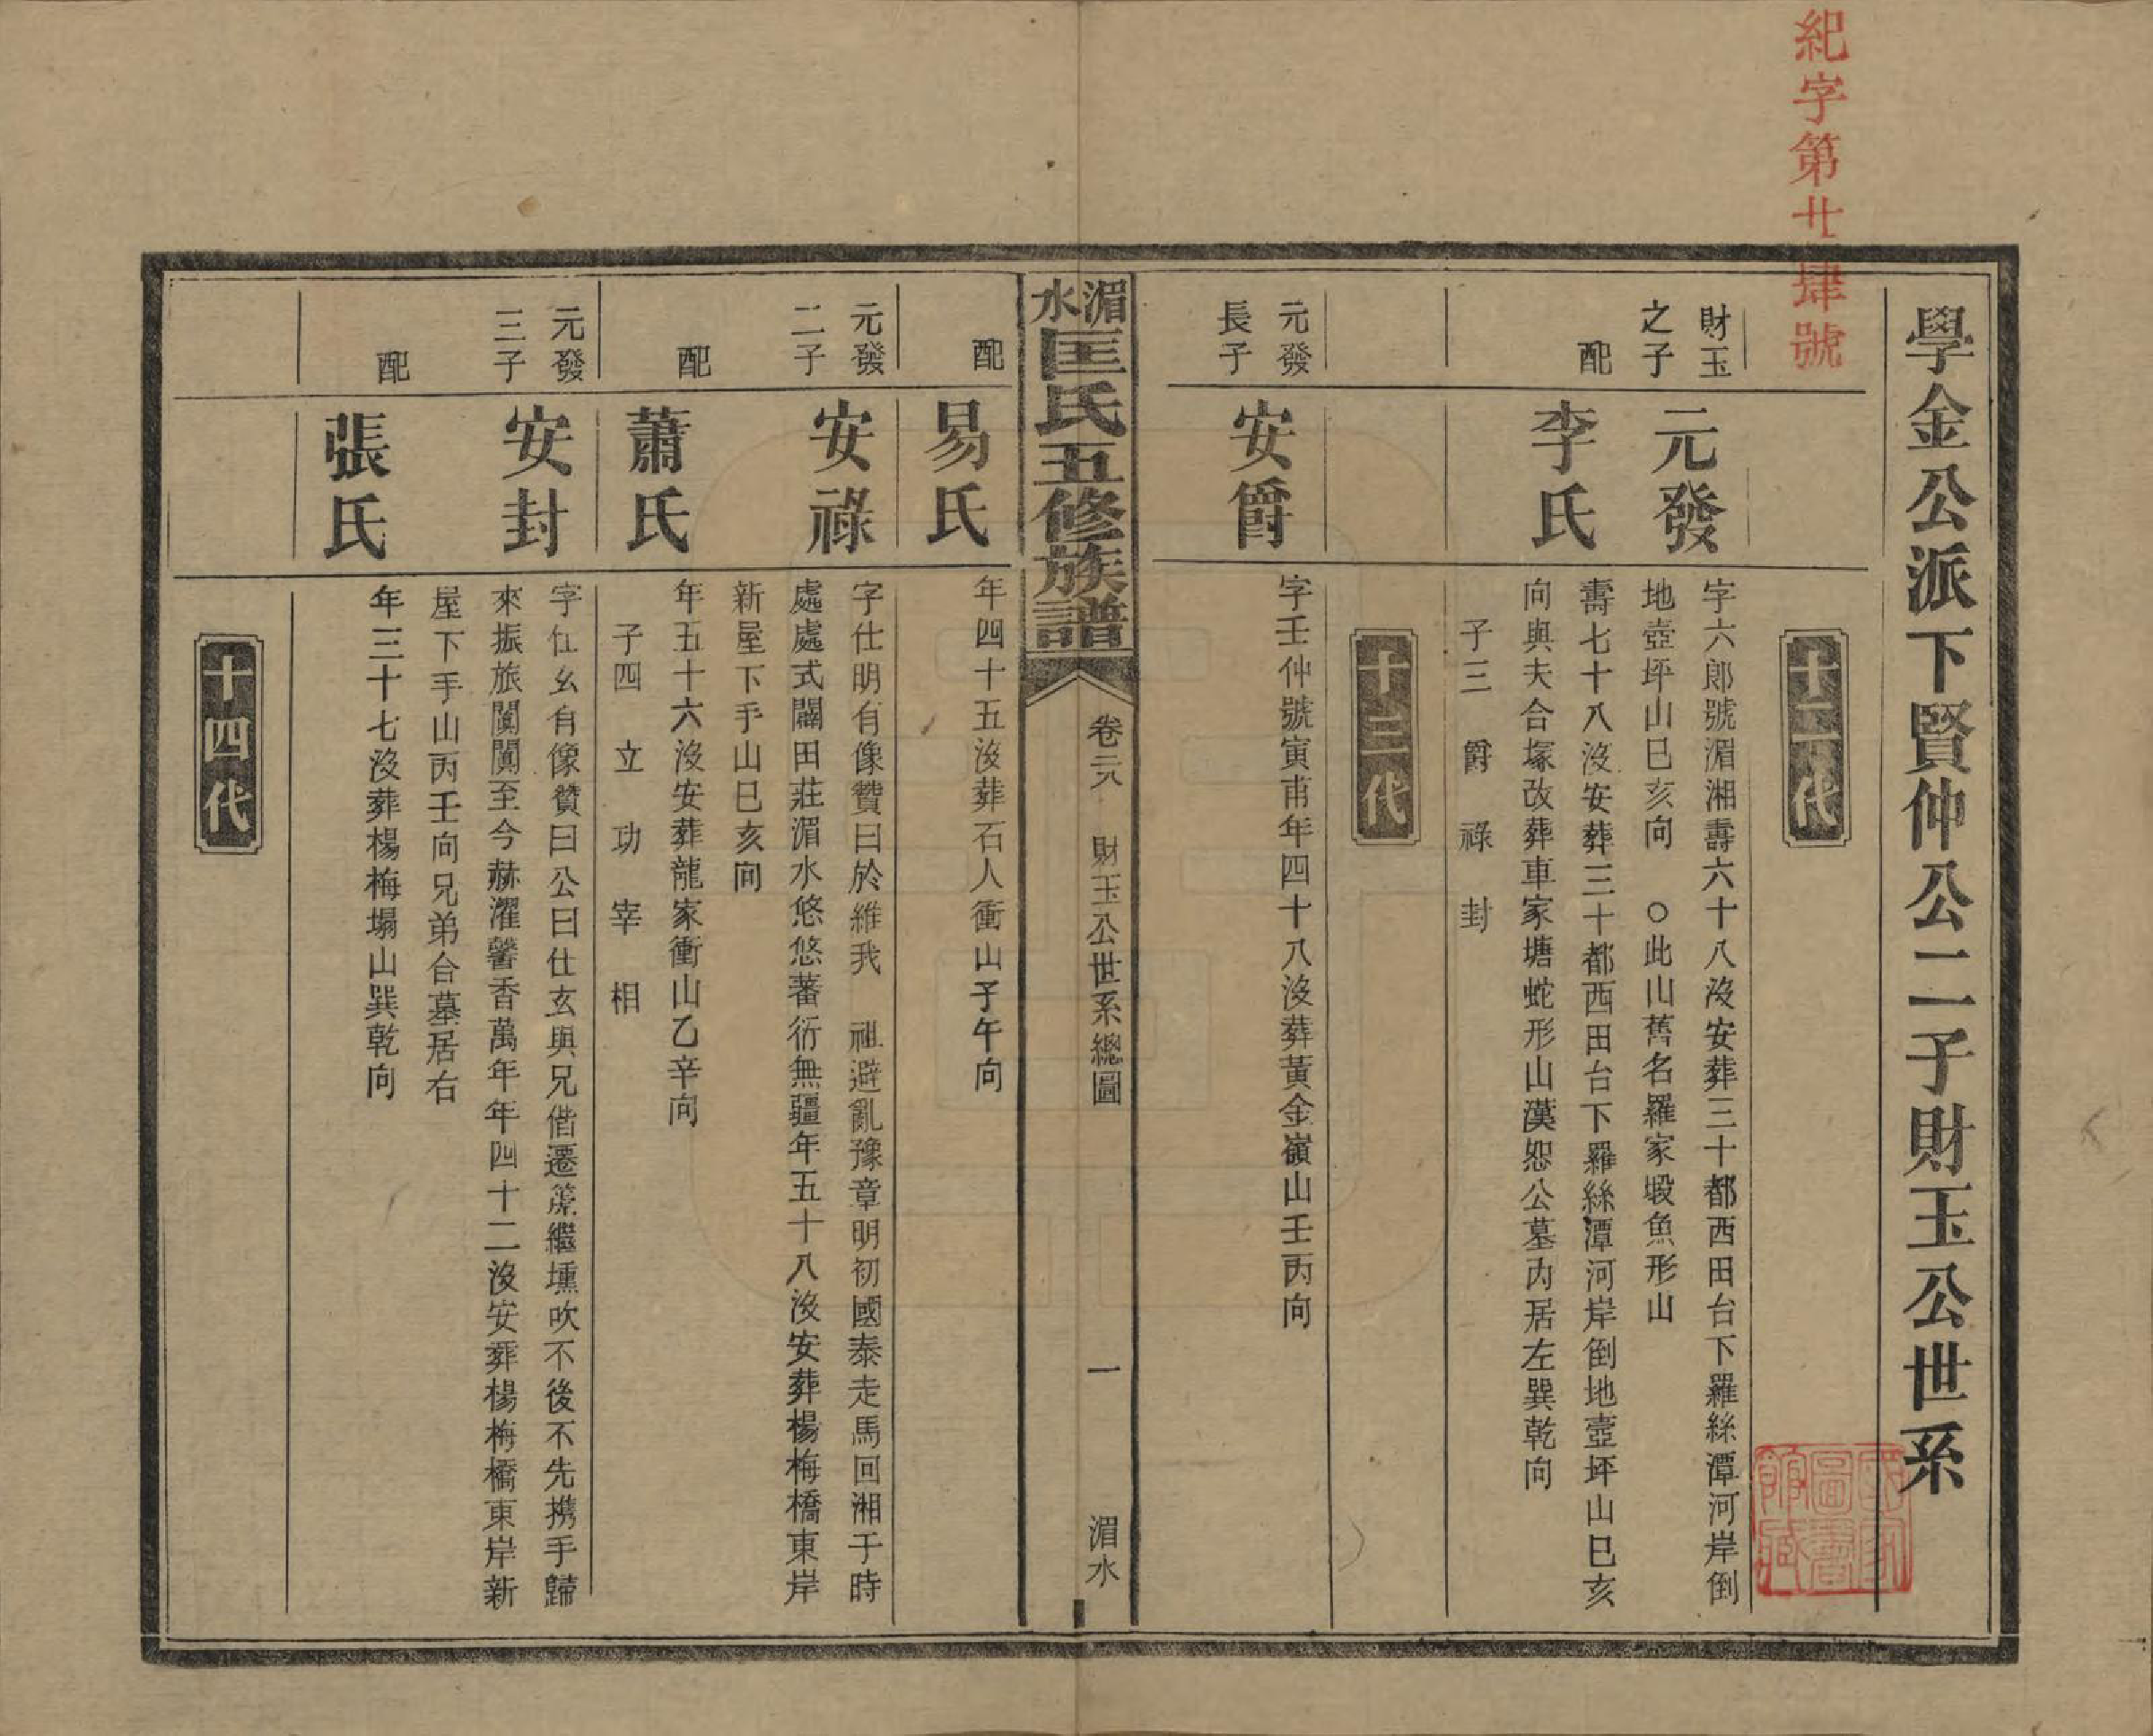 紀字第廿肆號
學金公派下賢仲公二子財玉公世系
十二代
財玉
之子
元發
字六郎號湄湘壽六十八沒安葬三十都西田台下羅絲潭河岸倒
地壺坪山巳亥向 ○此山舊名羅家塅魚形山
配
李氏
壽七十八沒安葬三十都西田台下羅絲潭河岸倒地壺坪山巳亥
向與夫合塚改葬車家塘蛇形山漢恕公墓內居左巽乾向
子三 爵 祿 封
十三代
元發
長子
安爵
字壬仲號寅甫年四十八沒葬黃金嶺山壬丙向
湄水
匡氏五修族譜
卷元 財玉公世系總圖
一
湄水
配
易氏
年四十五沒葬石人衝山子午向
元發
二子
安祿
字仕明有像贊曰於維我 祖避亂豫章明初國泰走馬回湘于時
處處式闢田莊湄水悠悠蕃衍無疆年五十八沒安葬楊梅橋東岸
新屋下手山巳亥向
配
蕭氏
年五十六沒安葬龍家衝山乙辛向
子四 立 功 宰 相
元發
三子
安封
字仕玄有像贊曰公曰仕玄與兄偕遷篪繼壎吹不後不先携手歸
來振旅闐闐至今赫濯馨香萬年年四十二沒安葬楊梅橋東岸新
屋下手山丙壬向兄弟合墓居右
配
張氏
年三十七沒葬楊梅塌山巽乾向
十四代
國家
圖書
館藏